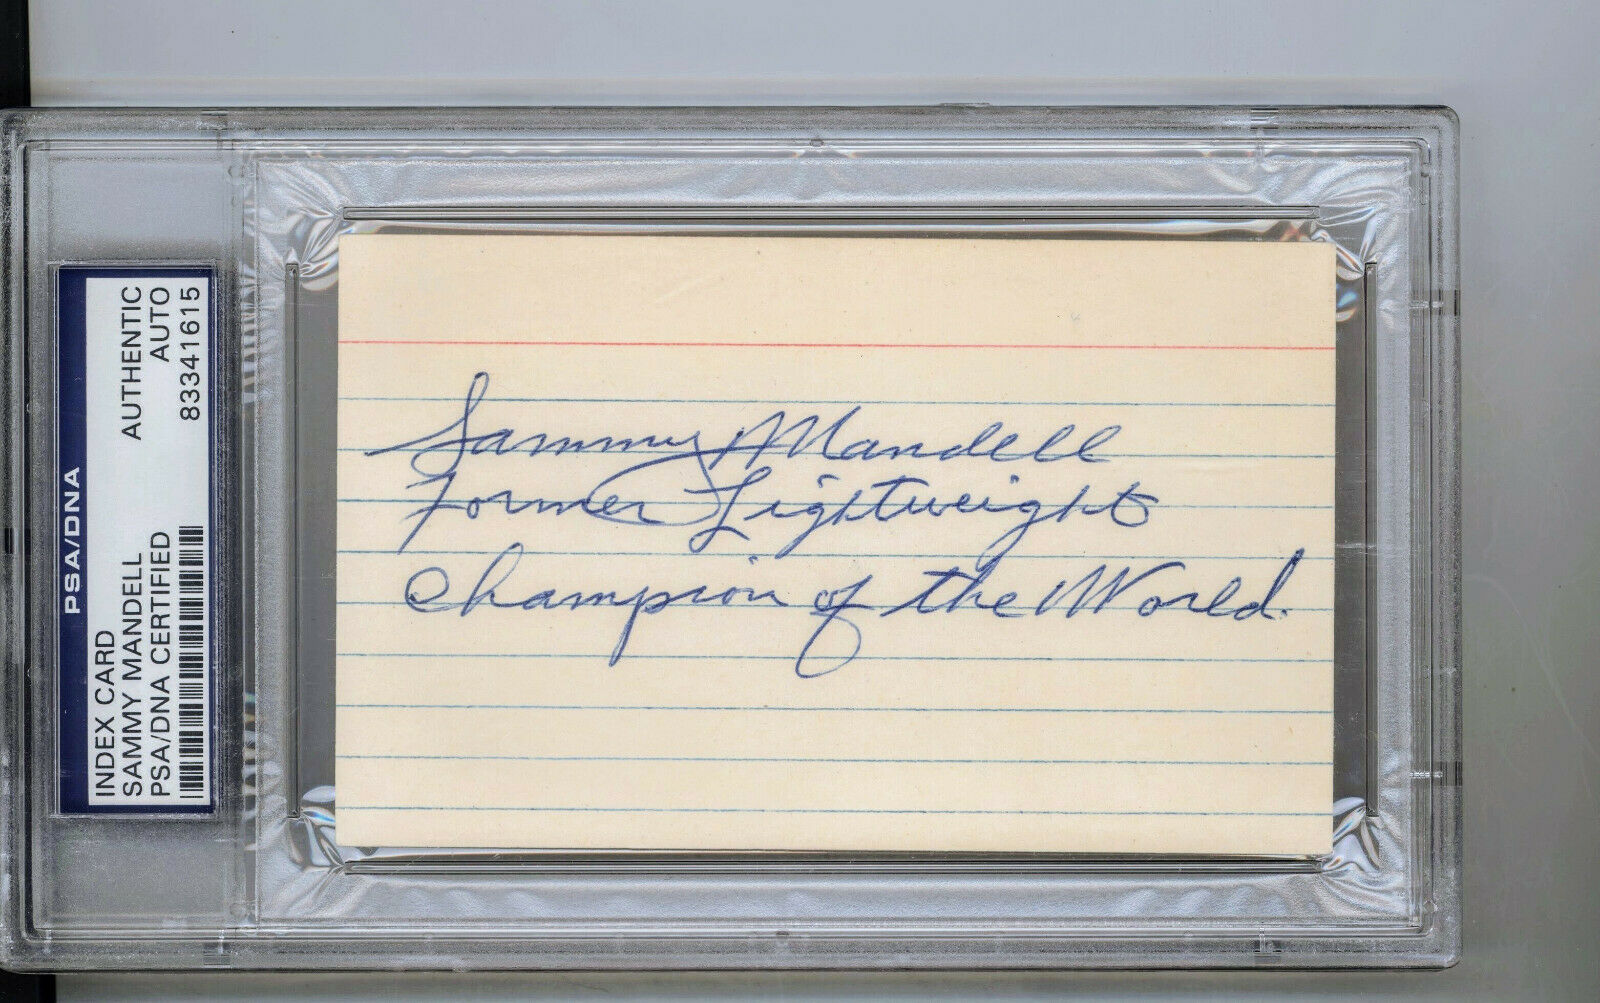 PSA/DNA
INDEX CARD
SAMMY MANDELL
PSA/DNA CERTIFIED
AUTHENTIC
AUTO
83341615
Sammy Mandell
Former Lightweight
Champion of the World.